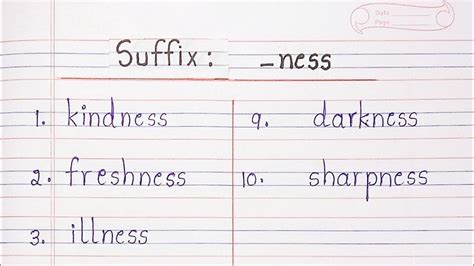 Date
Page
Suffix: -ness
1. kindness
2. freshness
3. illness
9. darkness
10. sharpness